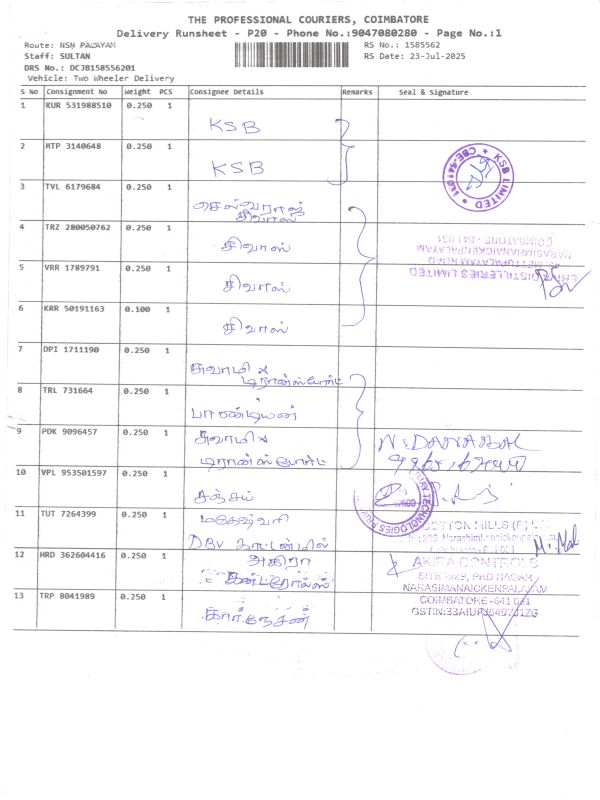 THE PROFESSIONAL COURIERS, COIMBATORE
Delivery Runsheet - P20 - Phone No.:9047080280 - Page No.:1
Route: NSN PALAYAM
RS No.: 1585562
Staff: SULTAN
RS Date: 23-Jul-2025
DRS No.: DCJB158556201
Vehicle: Two Wheeler Delivery
S No Consignment No Weight PCS Consignee Details Remarks Seal & Signature
1 KUR 531988510 0.250 1
KSB
2 MTP 3140648 0.250 1
KSB
KSB LIMITED
3 TVL 6179684 0.250 1
செல்வராஜ்
சிவாஸ்
4 TRZ 280050762 0.250 1
சிவாஸ்
COIMBATORE - 641 031
NARASIMHANAICKENPALAYAM
METTUPALAYAM ROAD
DISTILLERIES LIMITED
5 VRR 1789791 0.250 1
சிவாஸ்
6 KRR 50191163 0.100 1
சிவாஸ்
7 DPI 1711190 0.250 1
சுவாமி
டிரான்ஸ்போர்ட்
8 TRL 731664 0.250 1
பாண்டியன்
9 PDK 9096457 0.250 1
சுவாமி
டிரான்ஸ்போர்ட்
N. DANABAL
10 VPL 953501597 0.250 1
சஞ்சய்
TECHNOLOGIES
11 TUT 7264399 0.250 1
மகேஷ்வரி
DBV காட்டன்மில்
COTTON MILLS (P)
Narasimanaickenpalayam
12 HRD 362604416 0.250 1
அகிரா
கன்ட்ரோல்ஸ்
AKIRA CONTROLS
NAGAR
NARASIMANAICKENPALAYAM
COIMBATORE-641 031
13 TRP 8041989 0.250 1
கார்த்திகேசன்